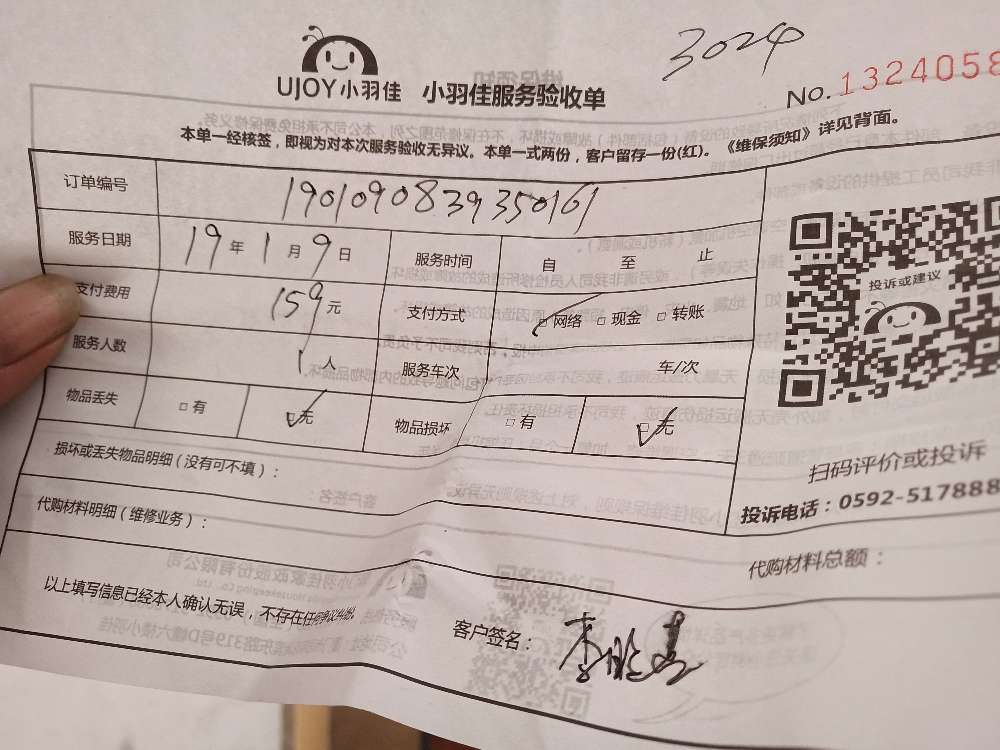 3024
UJOY小羽佳 小羽佳服务验收单
No.1324058
本单一经核签，即视为对本次服务验收无异议。本单一式两份，客户留存一份(红)。《维保须知》详见背面。
订单编号 1901090839350161
服务日期 19年1月9日 服务时间 自 至 止
支付费用 159元 支付方式 □网络 □现金 □转账
服务人数 1人 服务车次 车/次
物品丢失 □有 □无 物品损坏 □有 □无
投诉或建议
损坏或丢失物品明细（没有可不填）：
扫码评价或投诉
投诉电话：0592-517888
代购材料明细（维修业务）：
代购材料总额：
以上填写信息已经本人确认无误，不存在任何争议纠纷。
客户签名：